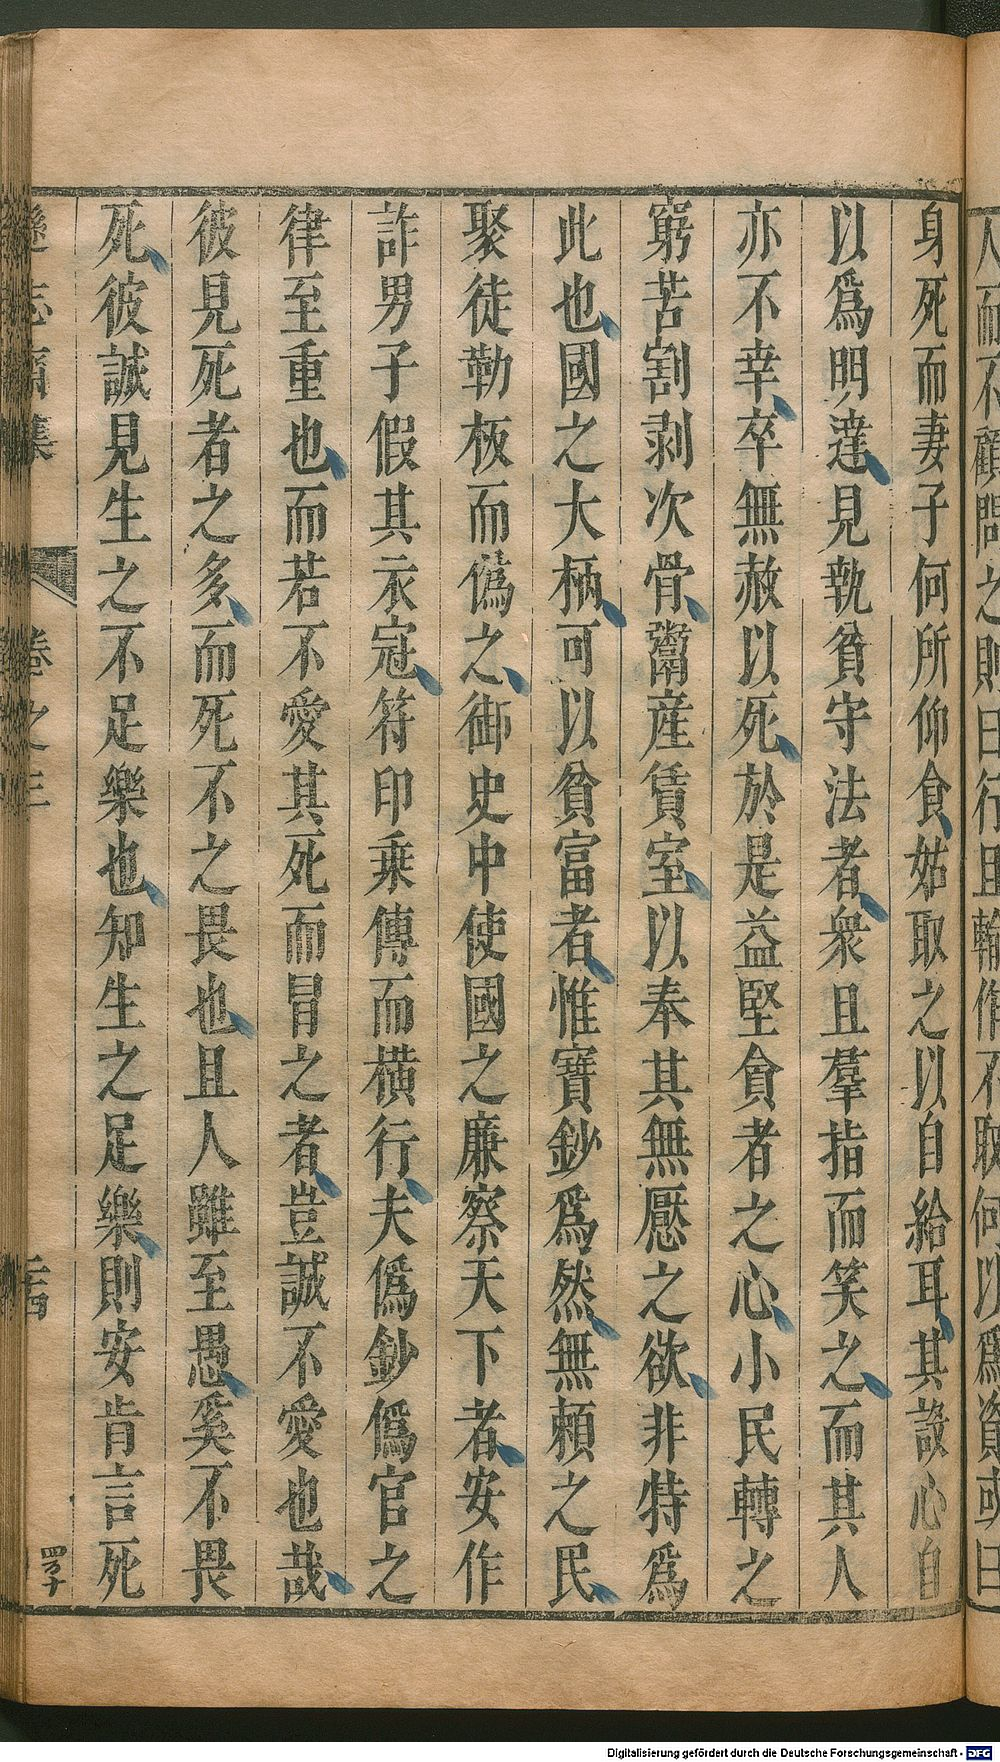 人而不顧問之則曰行且輸作不取何以爲資或曰
身死而妻子何所仰食姑取之以自給耳其設心自
以爲明達見執貧守法者衆且羣指而笑之而其人
亦不幸卒無赦以死於是益堅貪者之心小民轉之
窮苦割剥次骨鬻産賃室以奉其無厭之欲非特爲
此也國之大柄可以貧富者惟寶鈔爲然無頼之民
聚徒勒板而僞之御史中使國之廉察天下者安作
詐男子假其衣冠符印乘傳而横行夫僞鈔僞官之
律至重也而若不愛其死而冒之者豈誠不愛也哉
彼見死者之多而死不之畏也且人雖至愚奚不畏
死彼誠見生之不足樂也知生之足樂則安肯言死
遜志齋集 卷之三
Digitalisierung gefördert durch die Deutsche Forschungsgemeinschaft - DFG